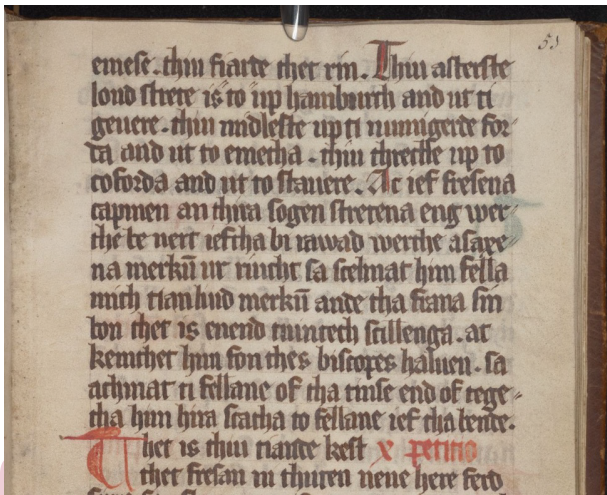 51
emese. thiu fiarde thet rin. Thiu asterste
lond strete is to up hamburch and ut ti
geuere. thiu midleste up ti mimigerde for
da and ut to emetha. thiu thredde up to
coforda and ut to stauere. Ac ief fresena
capmen an thira sogen stretena eng wer
the be nert ieftha bi rawad werthe a saxe
na merkū ut riucht sa scelmat him fella
mith tian liud merkū ande tha frana sin
bon thet is enend tuintech scillenga. at
kemthet him fon thes biscopes haluen. sa
achmat ti fellane of tha tinse end of tege
tha him hira scatha to fellane ief tha lente.
Thet is thiu tiande kest x petitio
thet fresan ni thuren nene here ferd